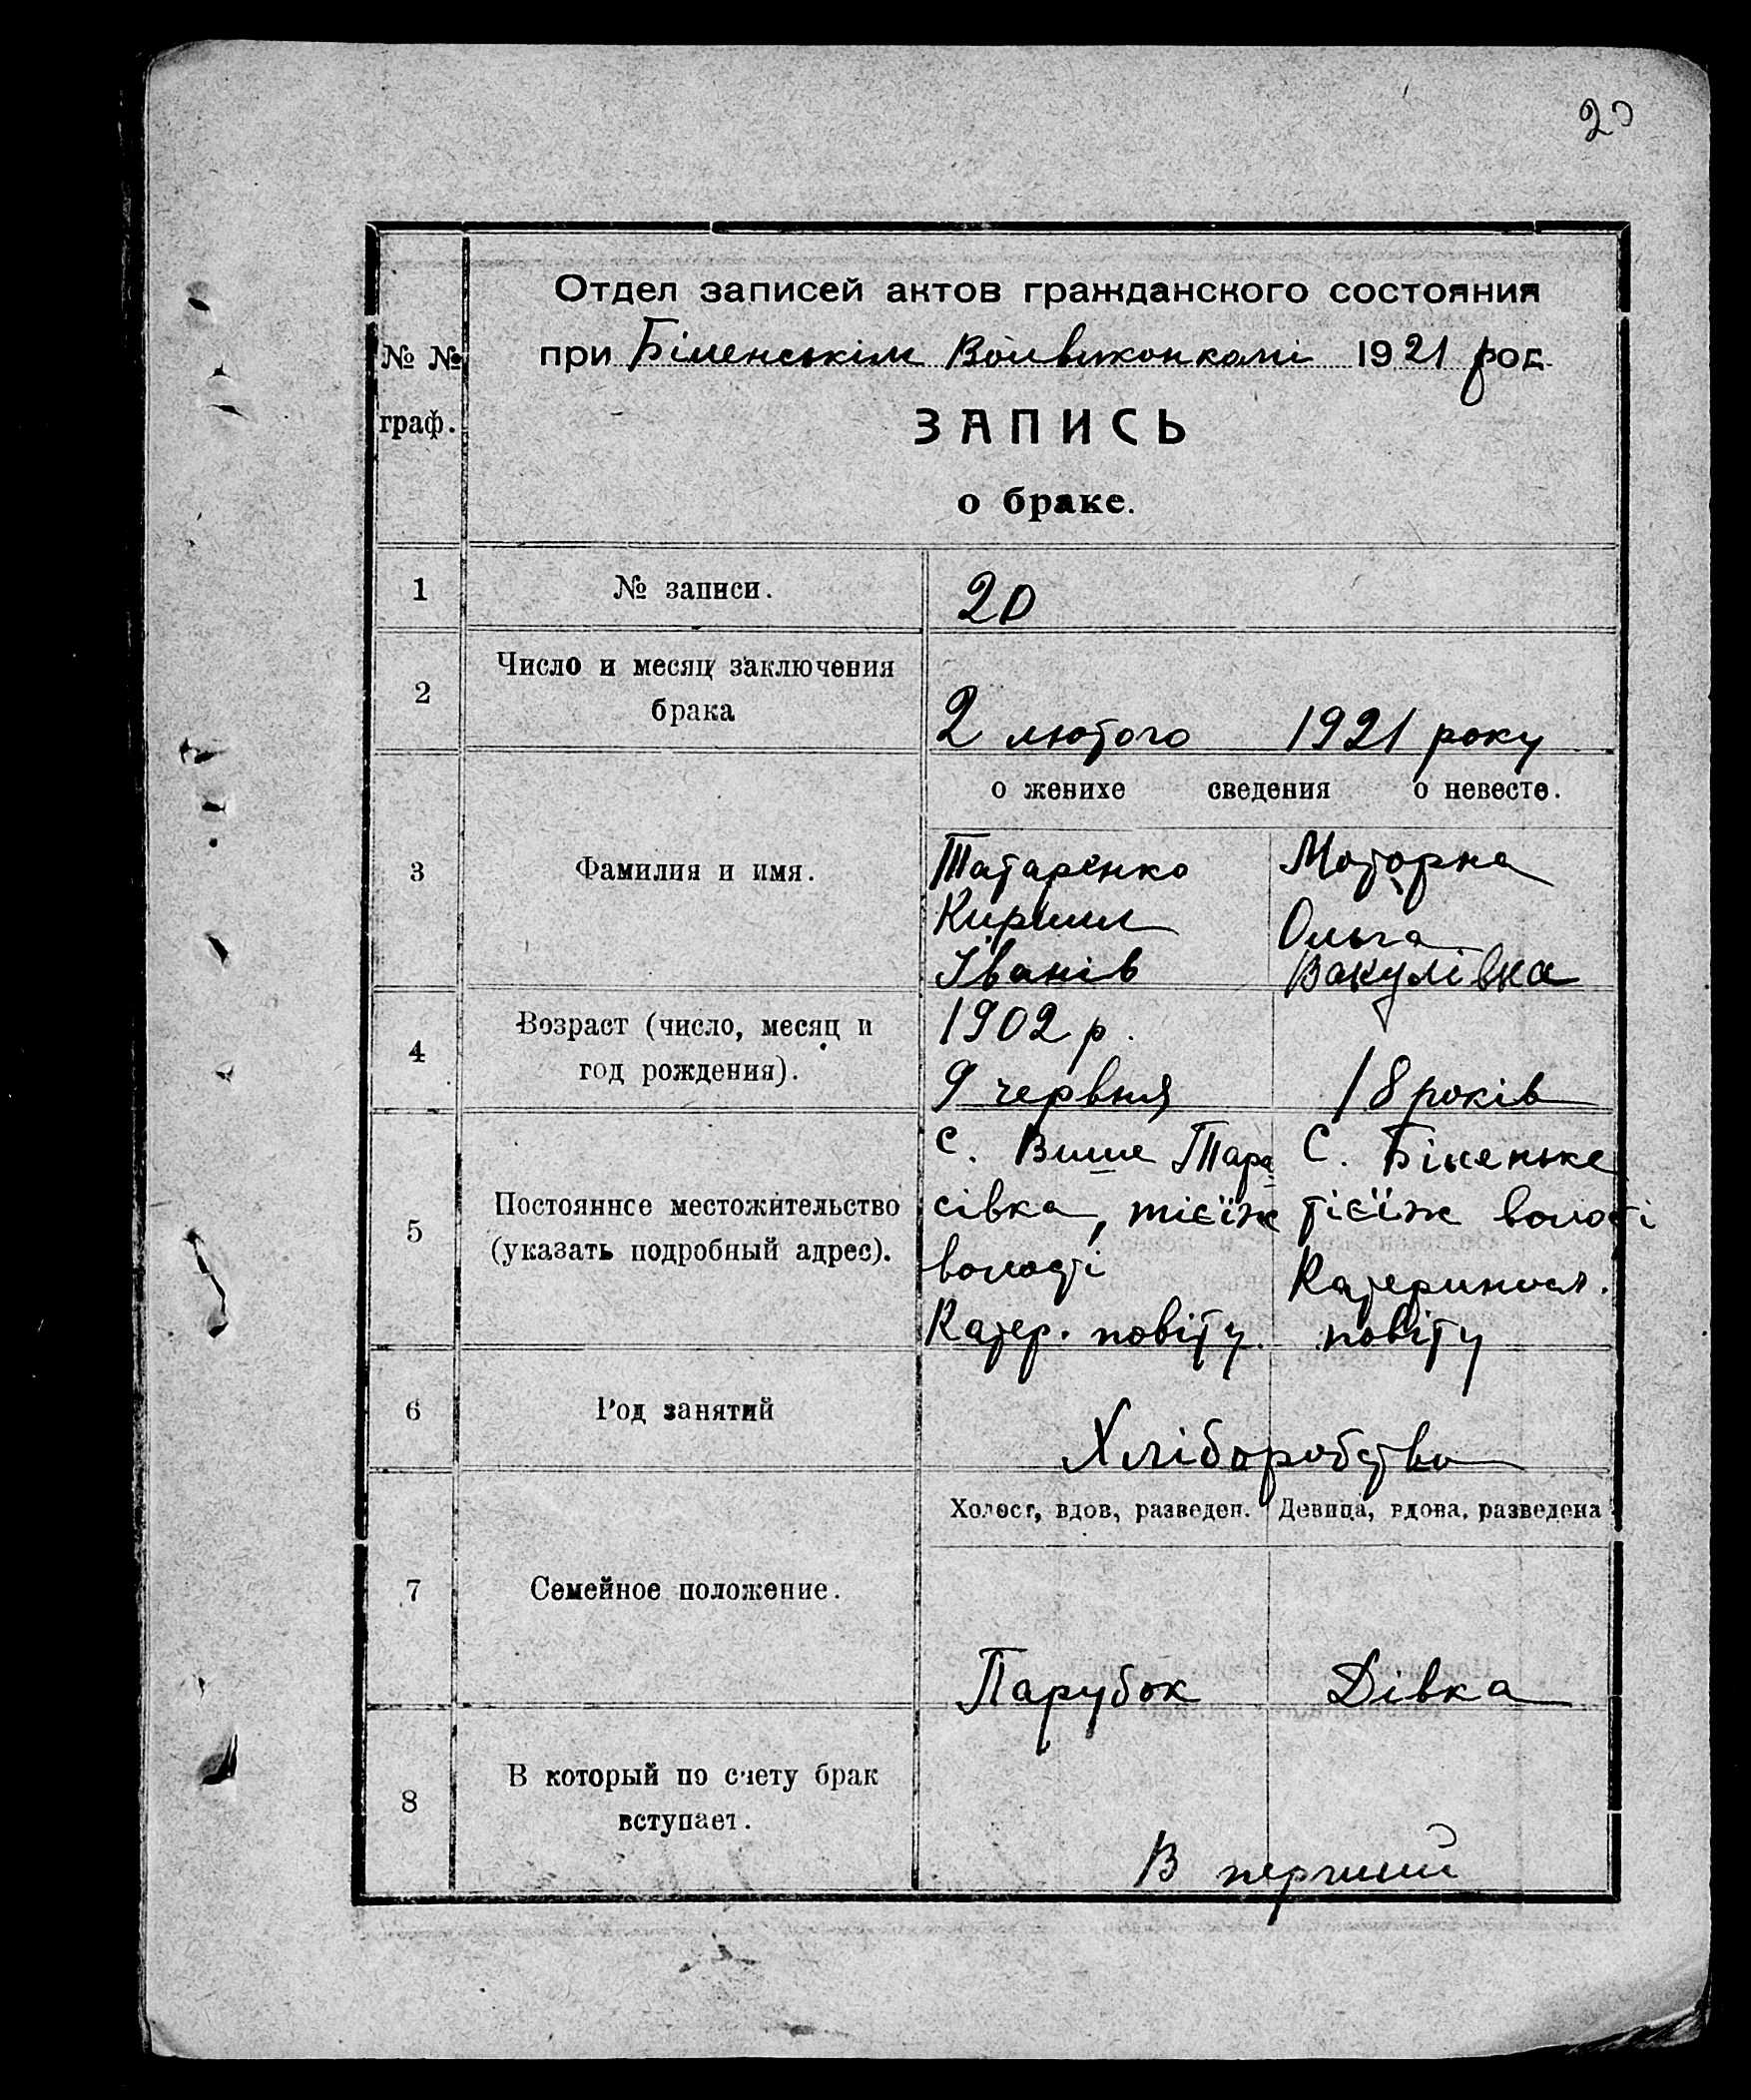 20
Отдел записей актов гражданского состояния
при Біленськім Волвиконкомі 1921 род.
№ №
граф.
ЗАПИСЬ
о браке.
1 № записи. 20
2 Число и месяц заключения
брака
2 лютого 1921 року
о женихе сведения о невесте.
3 Фамилия и имя.
Татаренко
Кирилл
Іванів
Моторна
Ольга
Вакулівна
4 Возраст (число, месяц и
год рождения).
1902 р.
9 червня
18 років
5 Постоянное местожительство
(указать подробный адрес).
с. Више Тара
сівка, тієїж
волості
Катер. повіту.
С. Біленьке
тієїж волості
Катериносл.
повіту
6 Род занятий
Хліборобство
Холост, вдов, разведен. Девица, вдова, разведена
7 Семейное положение.
Парубок Дівка
8 В который по счету брак
вступает.
В перший